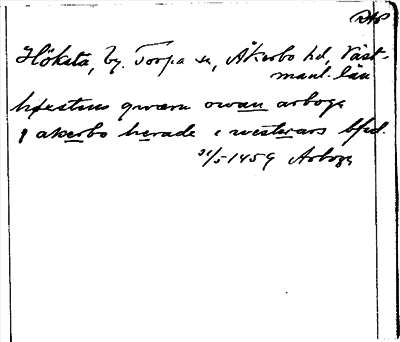 RAP
Höksta, by. Torpa sn, Åkerbo hd, Väst-
manl. län
høxstens qwærn owan arboga
j akerbo herade i westerars bpd.
21/5 1459 Arboga